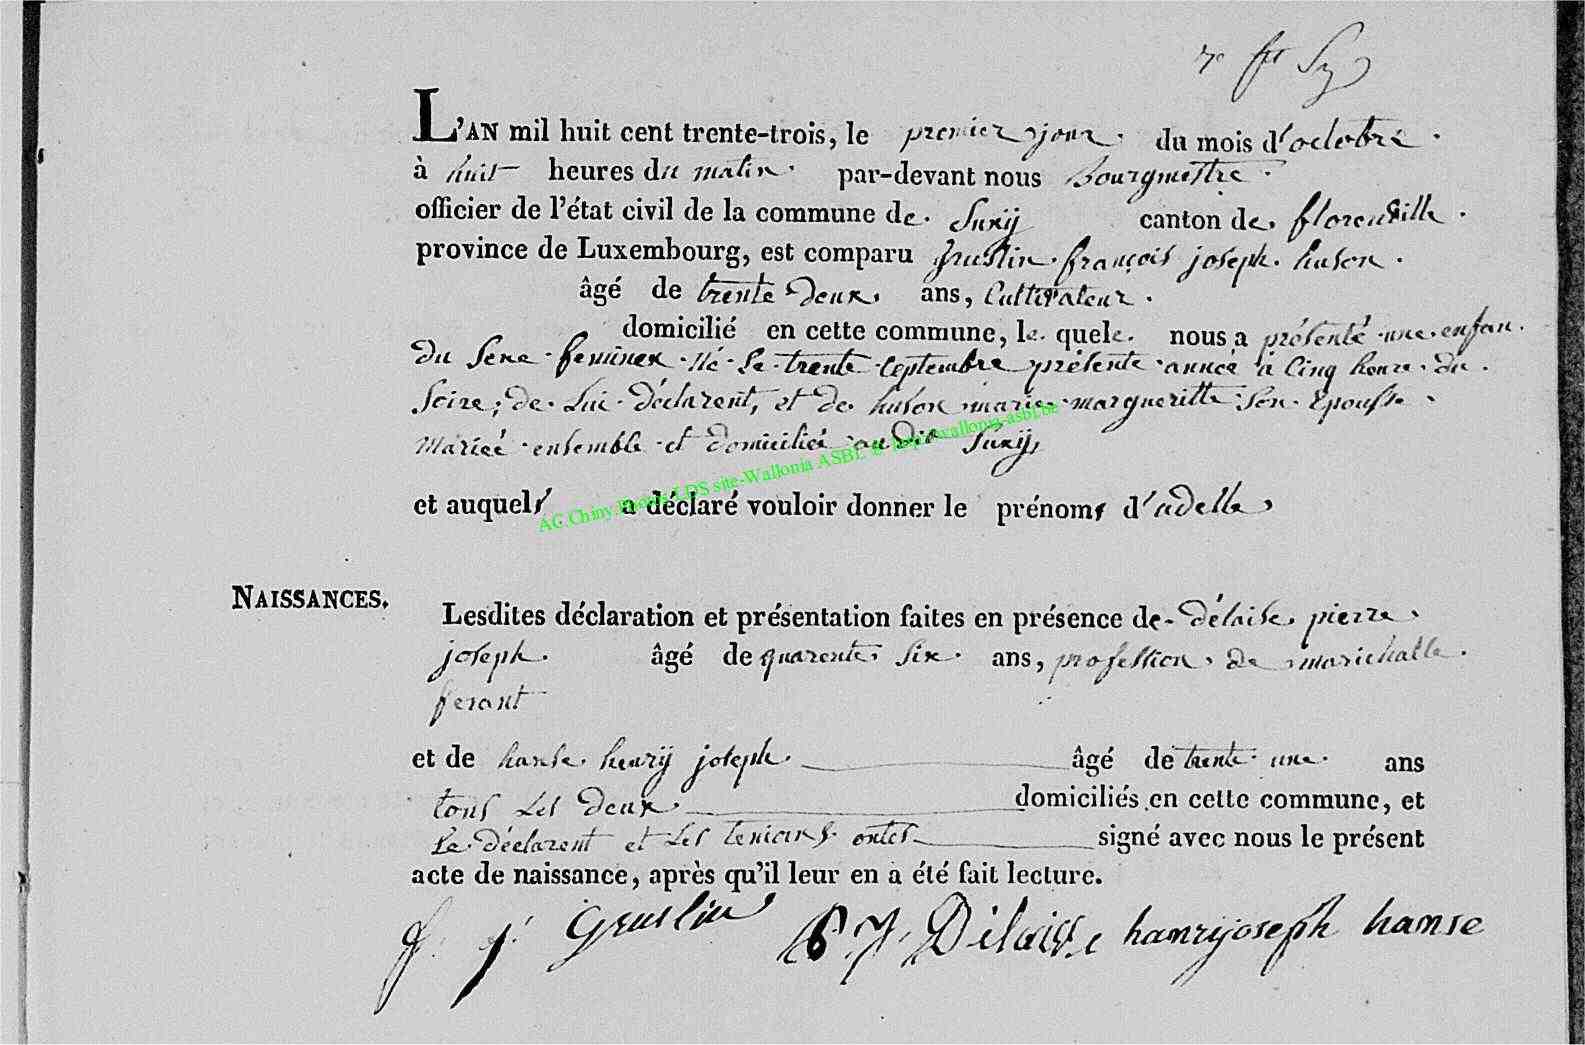 7e ft
L'AN mil huit cent trente-trois, le premier jour du mois d'octobre
à huit heures du matin par-devant nous Bourgmettre
officier de l'état civil de la commune de Suxij canton de florenville
province de Luxembourg, est comparu Gruslin françois joseph huson
âgé de trente deux ans, Cultivateur
domicilié en cette commune, le quele nous a présenté une enfan
du Sexe feminen Né Le trente septembre présente année à Cinq heure du
Soire; de Lui déclarent, et de huson marie margueritte Son Epousse
Marieé ensemble et domicilié audit Suxij
et auquels a déclaré vouloir donner le prénoms d'adelle
NAISSANCES.
Lesdites déclaration et présentation faites en présence de délaise pierre
joseph âgé de quarente Six ans, profession de marichalle
ferant
et de hanse henrij joseph âgé de trente une ans
tous Les deux domiciliés en cette commune, et
Le déclarent et Les temoins ontes signé avec nous le présent
acte de naissance, après qu'il leur en a été fait lecture.
f. j. Gruslin P J Délaisse hanrijoseph hanse
AC Chiny Photos LDS site-Wallonia ASBL © http://wallonia-asbl.be